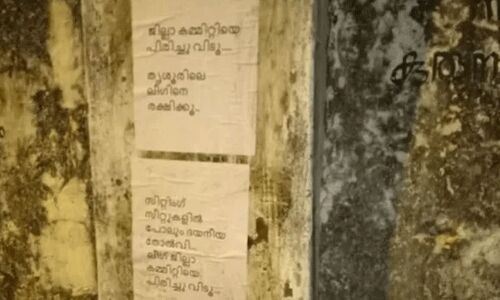 ജില്ലാ കമ്മിറ്റിയെ
പിരിച്ചു വിടൂ....
തൃശൂരിലെ
ലീഗിനെ
രക്ഷിക്കൂ..
സിറ്റിംഗ്
സീറ്റുകളിൽ
പോലും ദയനീയ
തോൽവി...
ലീഗ് ജില്ലാ
കമ്മിറ്റിയെ
പിരിച്ചു വിടൂ...